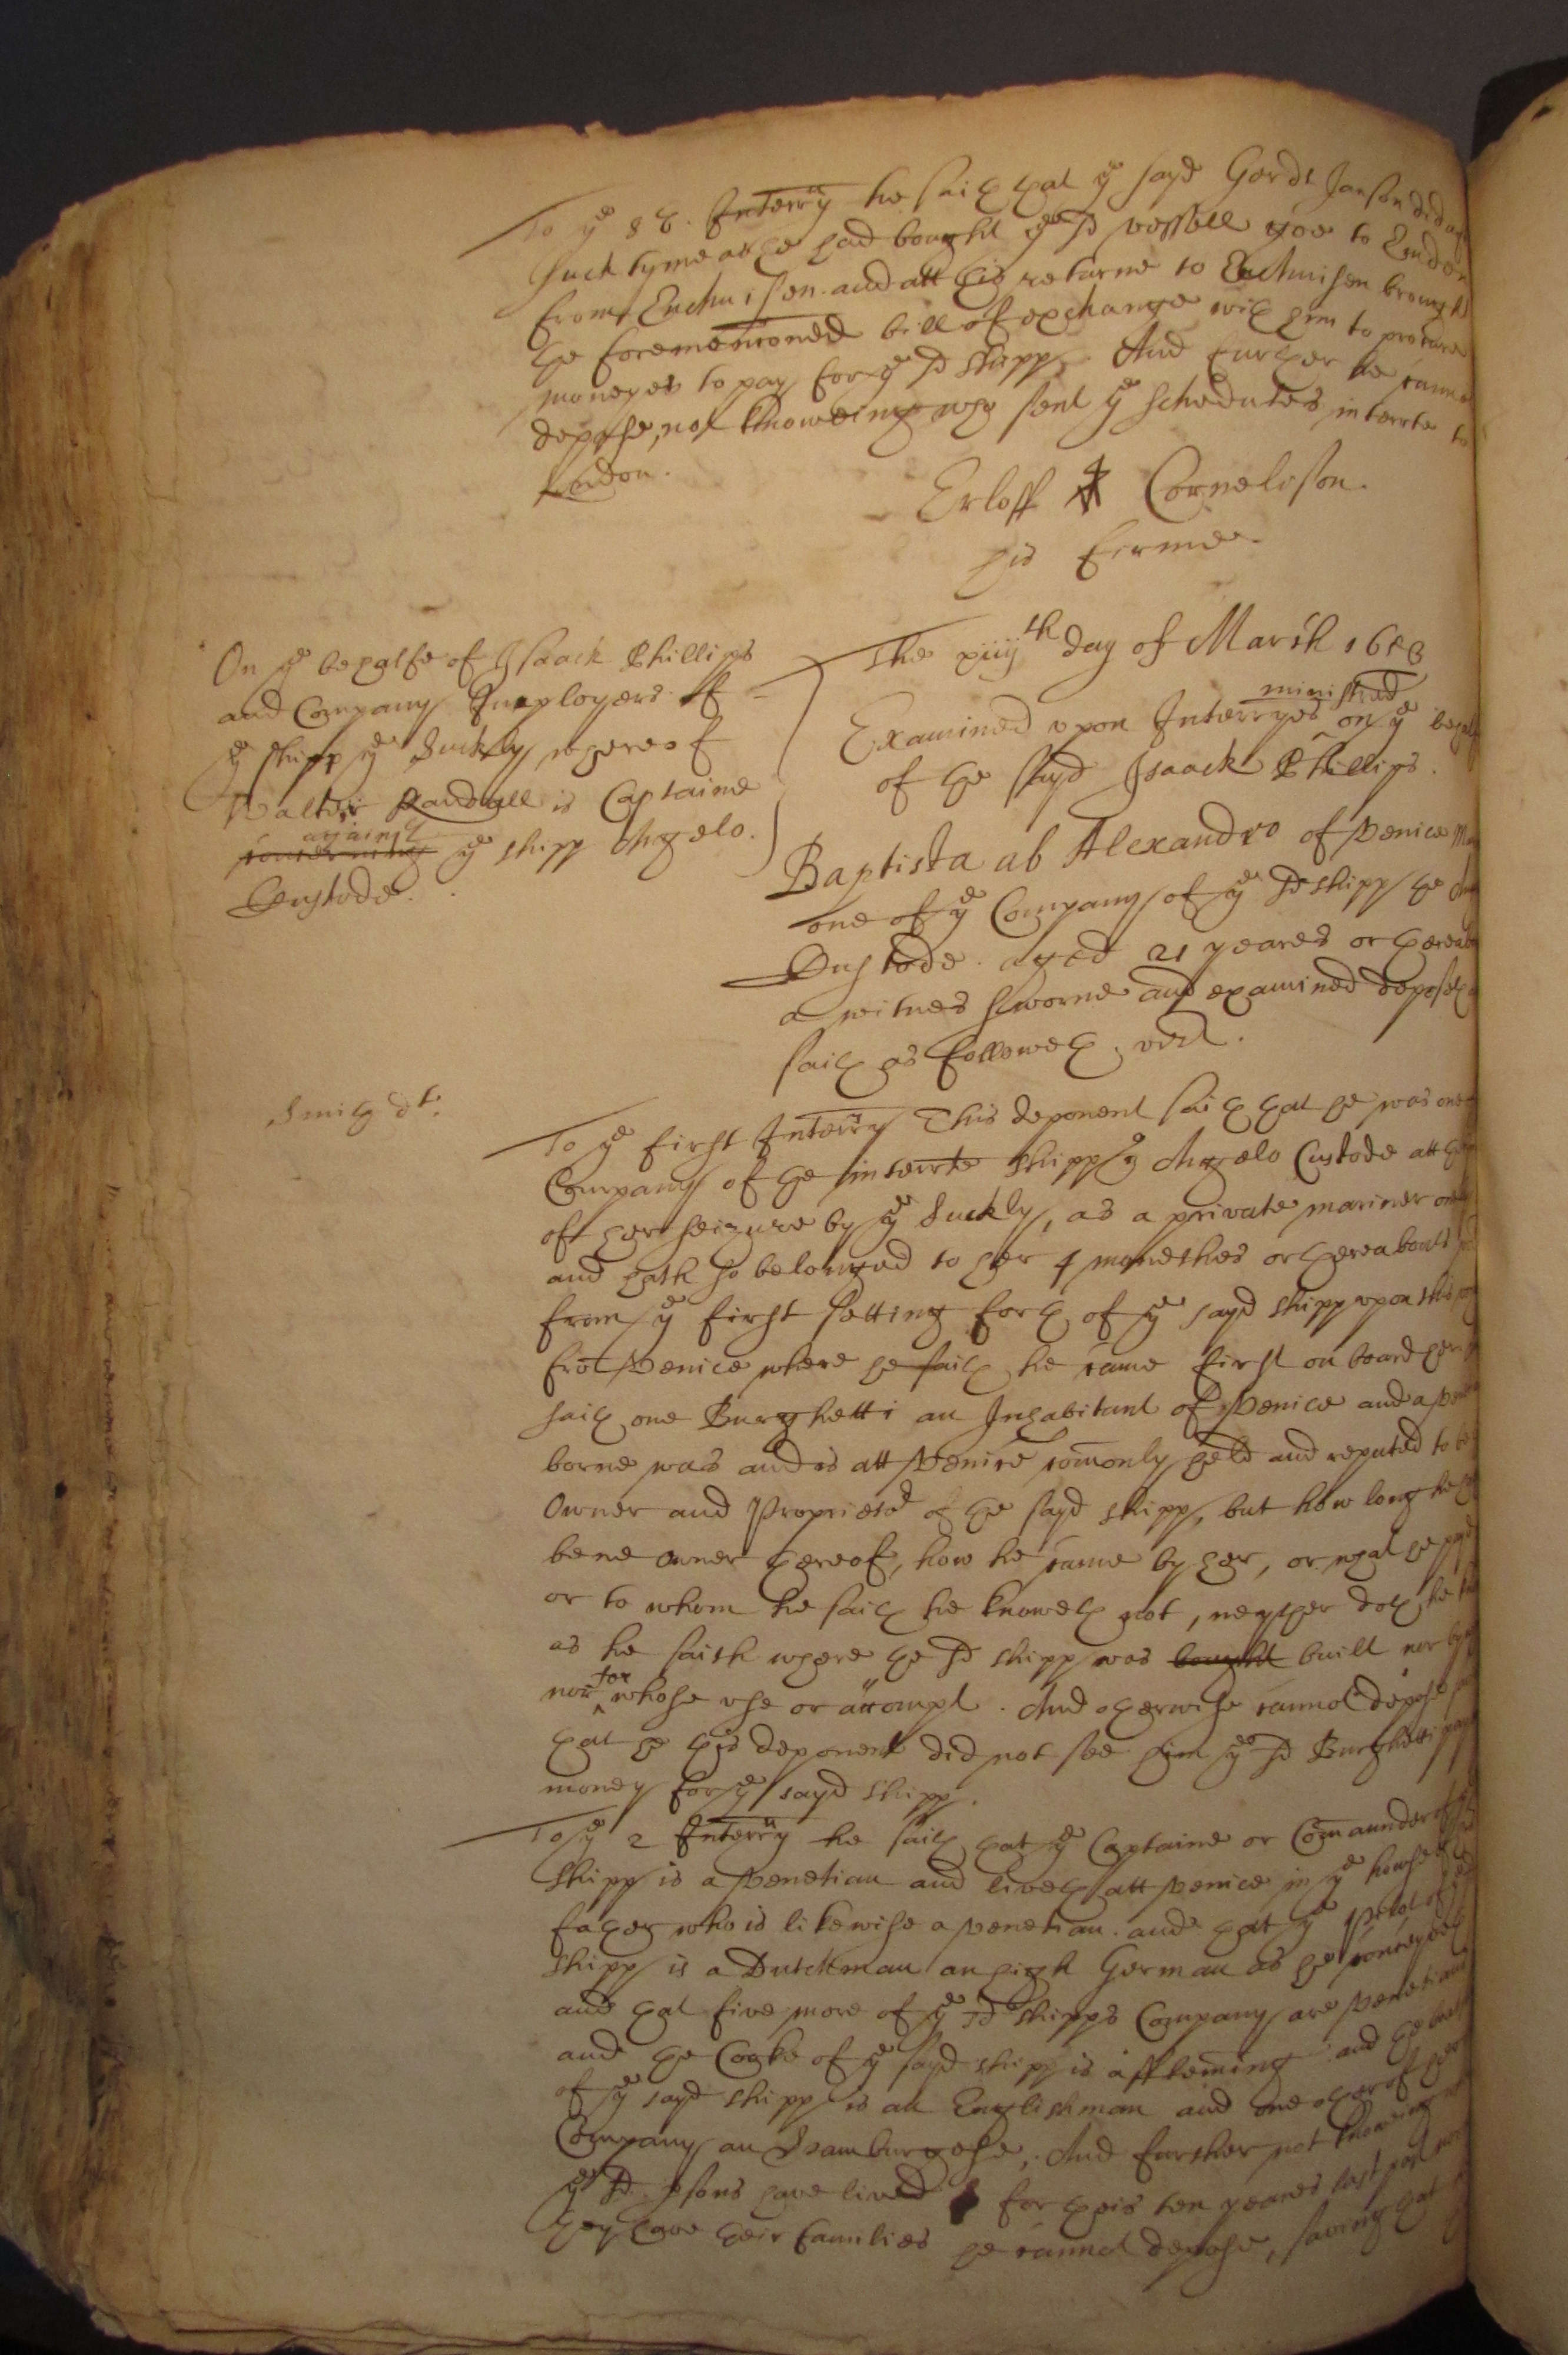 To ye 8th. Interry he saith that ye sayd Gerdt Janson did att
such tyme as he had bought ye sd vessell goe to London
from Enchuisen. and att his returne to Enchuisen brought
the forementioned bill of exchange with him to procure
moneyes to pay for ye sd shipp. And further he cannot
depose, not knoweing who sent ye schedules interrte to
London.
Erloff Cornelison.
his firme.
On ye behalfe of Isaack Phillips
and Company Imployers of
ye shipp ye Suckly whereof
Walter Randall is Captaine
against
concerning ye shipp Angelo
Custode.
The xiiijth day of March 1653
ministred
Examined upon Interryes on ye behalfe
of the sayd Isaack Phillips.
Baptista ab Alexandro of Venice
one of ye Company of ye sd shipp the
Custode. aged 21 yeares or thereabts
a witnes sworne and examined deposeth
saith as followeth, vizt.
Smith dt.
To ye first Interry This deponent saith that he was one of
Company of the interrte shipp ye Angelo Custode att the
of her seizure by ye Suckly, as a private mariner
and hath so belonged to her 4 monethes or thereabouts
from ye first setting forth of ye sayd shipp upon this
fro Venice where he saith he came first on board her
saith one Burghetti an Inhabitant of Venice and a
borne was and is att Venice comonly held and reputed to be
Owner and Proprietor of the sayd shipp, but how long he
bene owner thereof, how he came by her, or what he payd
or to whom he saith he knoweth not, neyther doth he
as he saith where the sd shipp was bought built nor by
nor for whose use or attompt. And otherwise cannot depose
that he this deponent did not see him ye sd Burghetti pay
money for ye sayd shipp.
To ye 2 Interry he saith that ye Captaine or Comaunder of
shipp is a Venetian and liveth att Venice in ye howse of
father who is likewise a Venetian. and that ye Pilot of
shipp is a Dutchman an high German as he conceyveth
and that five more of ye sd shipps Company are Venetians
and the Cooke of ye sayd shipp is a ffleming and the
of ye sayd shipp is an Englishman and one other of her
Company an Hamburgese. And further not knoweing
ye sd psons have lived for theis ten yeares last past
they have their families he cannot depose, saving that